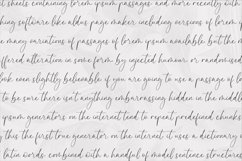 t sheets containing lorem ipsum passages and more recently with
hing software like aldus page maker including versions of lorem ip
are many variations of passages of lorem ipsum available but the m
ffered alteration in some form by injected humour or randomised
look even slightly believable if you are going to use a passage of lo
to be sure there isn't anything embarrassing hidden in the middle
ipsum generators on the internet tend to repeat predefined chunks
g this the first true generator on the internet it uses a dictionary o
latin words combined with a handful of model sentence structures